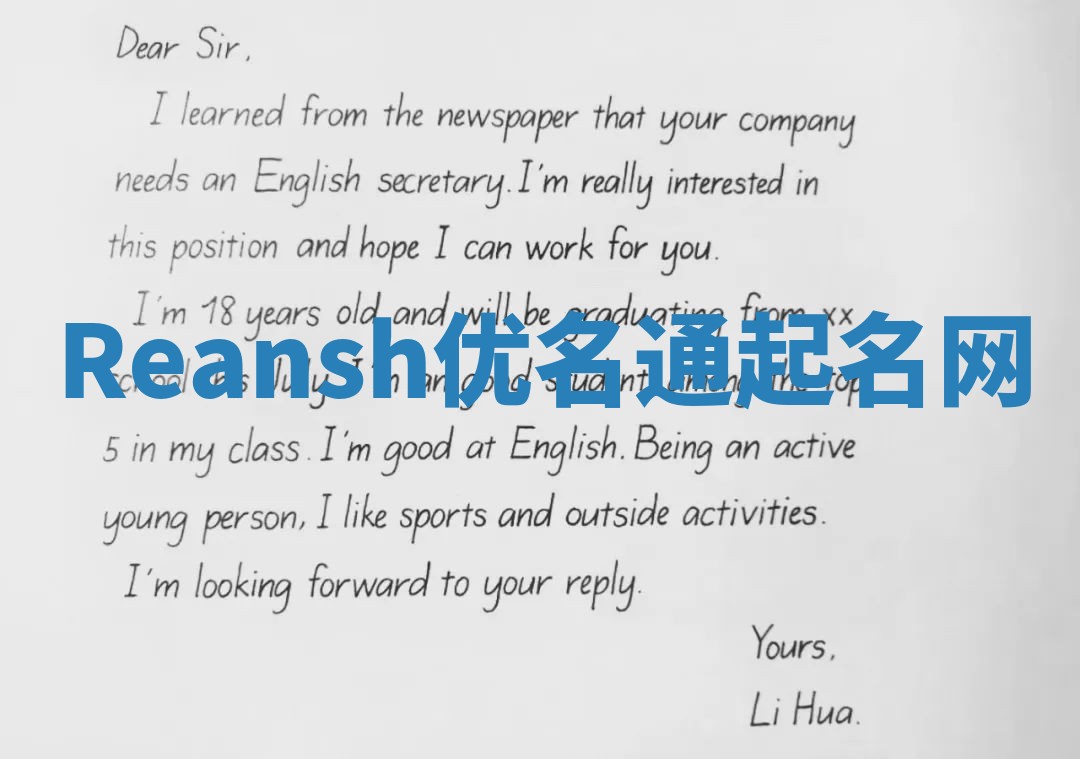 Dear Sir,
I learned from the newspaper that your company
needs an English secretary. I'm really interested in
this position and hope I can work for you.
I'm 18 years old and will be graduating from xx
Reansh优名通起名网
school this July. I'm a good student among the top
5 in my class. I'm good at English. Being an active
young person, I like sports and outside activities.
I'm looking forward to your reply.
Yours,
Li Hua.